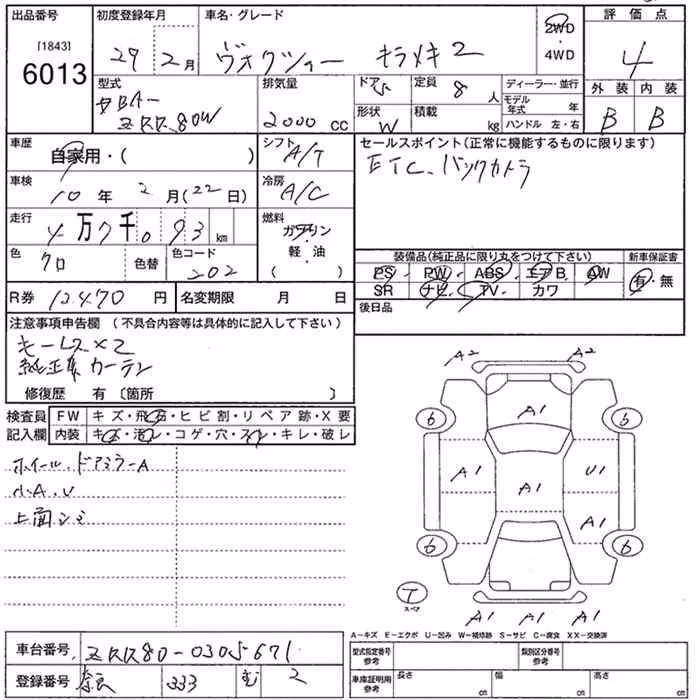 出品番号
[1843]
6013
初度登録年月
29年2月
車名・グレード
ヴォクシー キラメキ2
2WD
4WD
評価点
4
型式
DBA-
ZRR80W
排気量
2000 CC
ドア
5
定員
8人
ディーラー・並行
モデル年式 年
外装 内装
B B
形状
W
積載
kg
ハンドル 左・右
車歴
自家用・( )
シフト
A/T
セールスポイント(正常に機能するものに限ります)
ETC、バックカメラ
車検
10年2月(22日)
冷房
A/C
走行
4万7千093km
燃料
ガソリン
軽・油
( )
色
クロ
色替
色コード
202
装備品(純正品に限り丸をつけて下さい)
新車保証書
PS PW ABS エアB AW
SR ナビ TV カワ
有・無
R券 12470円
名変期限 月 日
後日品
注意事項申告欄 (不具合内容等は具体的に記入して下さい)
キーレス×2
純正 カーテン
修復歴 有 〔箇所 〕
検査員
記入欄
FW キズ・飛石・ヒビ割・リペア跡・X要
内装 キズ・汚レ・コゲ・穴・スレ・キレ・破レ
ホイール、ドアミラーA
小A、U
上面シミ
A2 A2
6 A1 6
A1 A1 U1
A1
6 6
T
スペア
A1 A1 A1
A-キズ E-エクボ U-凹み W-補修跡 S-サビ C-腐食 XX-交換済
車台番号 ZRR80-0305671
型式指定番号
参考
類別区分番号
参考
登録番号 奈良 333 む 2
車庫証明用
参考
長さ cm
幅 cm
高さ cm